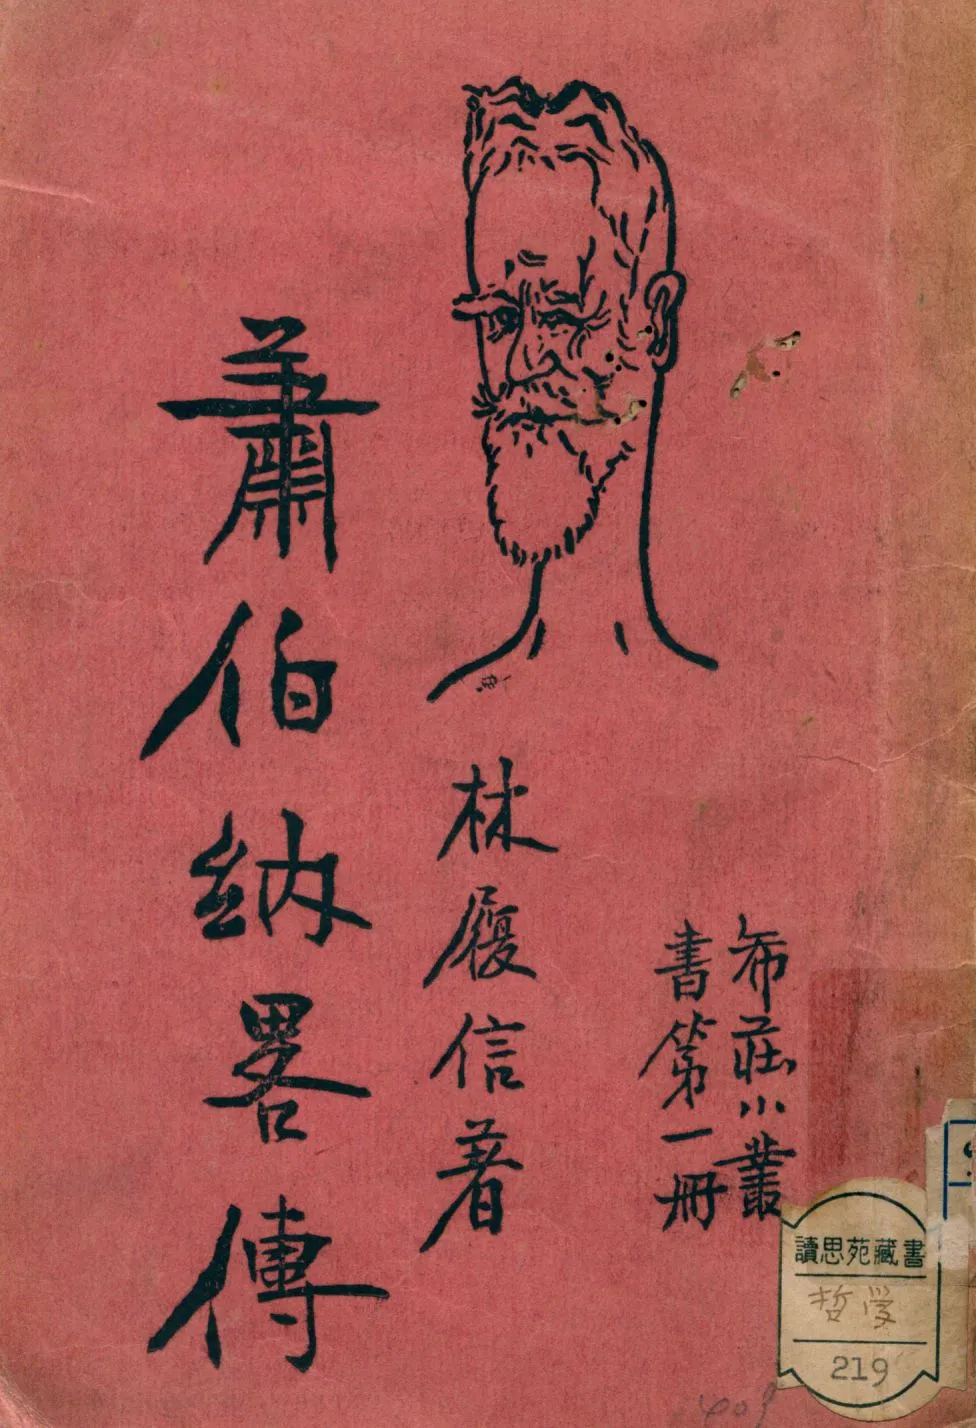 希莊小叢
書第一冊
林履信著
蕭伯納畧傳
讀思苑藏書
哲学
219